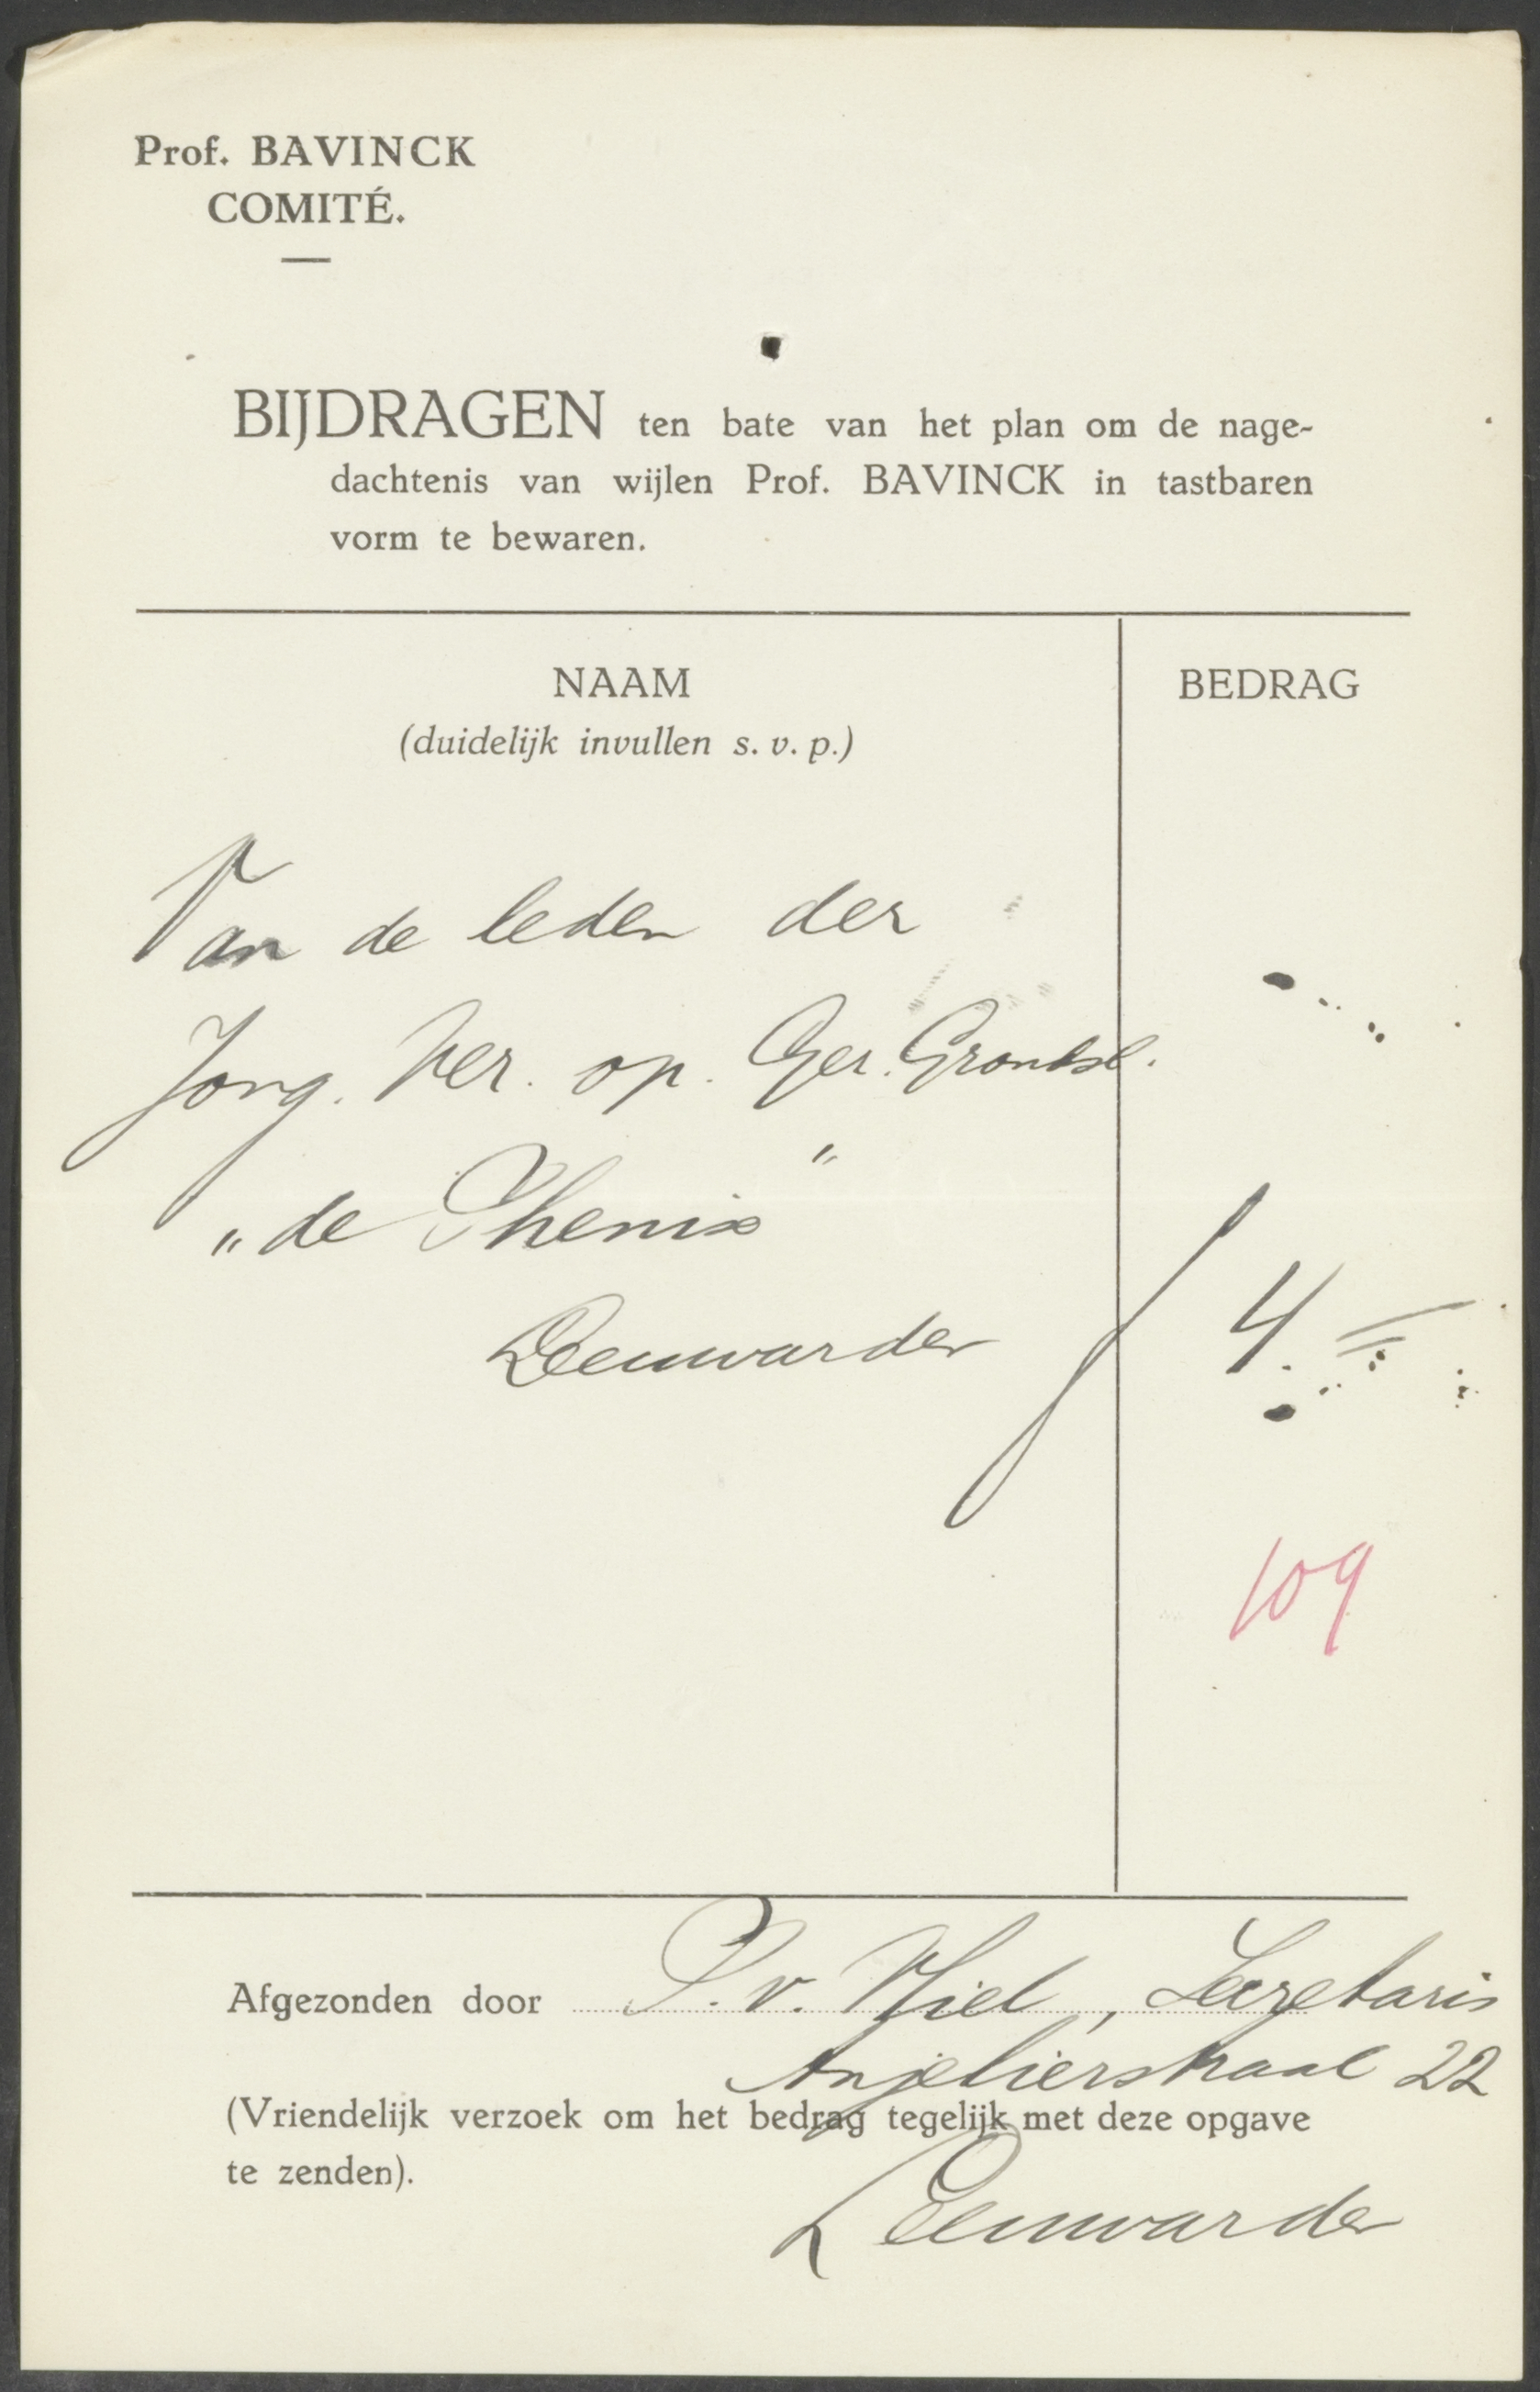 Prof. BAVINCK
COMITÉ.
BIJDRAGEN ten bate van het plan om de nage-
dachtenis van wijlen Prof. BAVINCK in tastbaren
vorm te bewaren.
NAAM
(duidelijk invullen s. v. p.)
BEDRAG
Van de leden der
Jong. Ver. op. Ger. Grondsl.
„de Phenix"
Leeuwarden f 4.=
109
Afgezonden door P. v. Wiel, Secretaris
Anjelierstraat 22
(Vriendelijk verzoek om het bedrag tegelijk met deze opgave
te zenden).
Leeuwarden